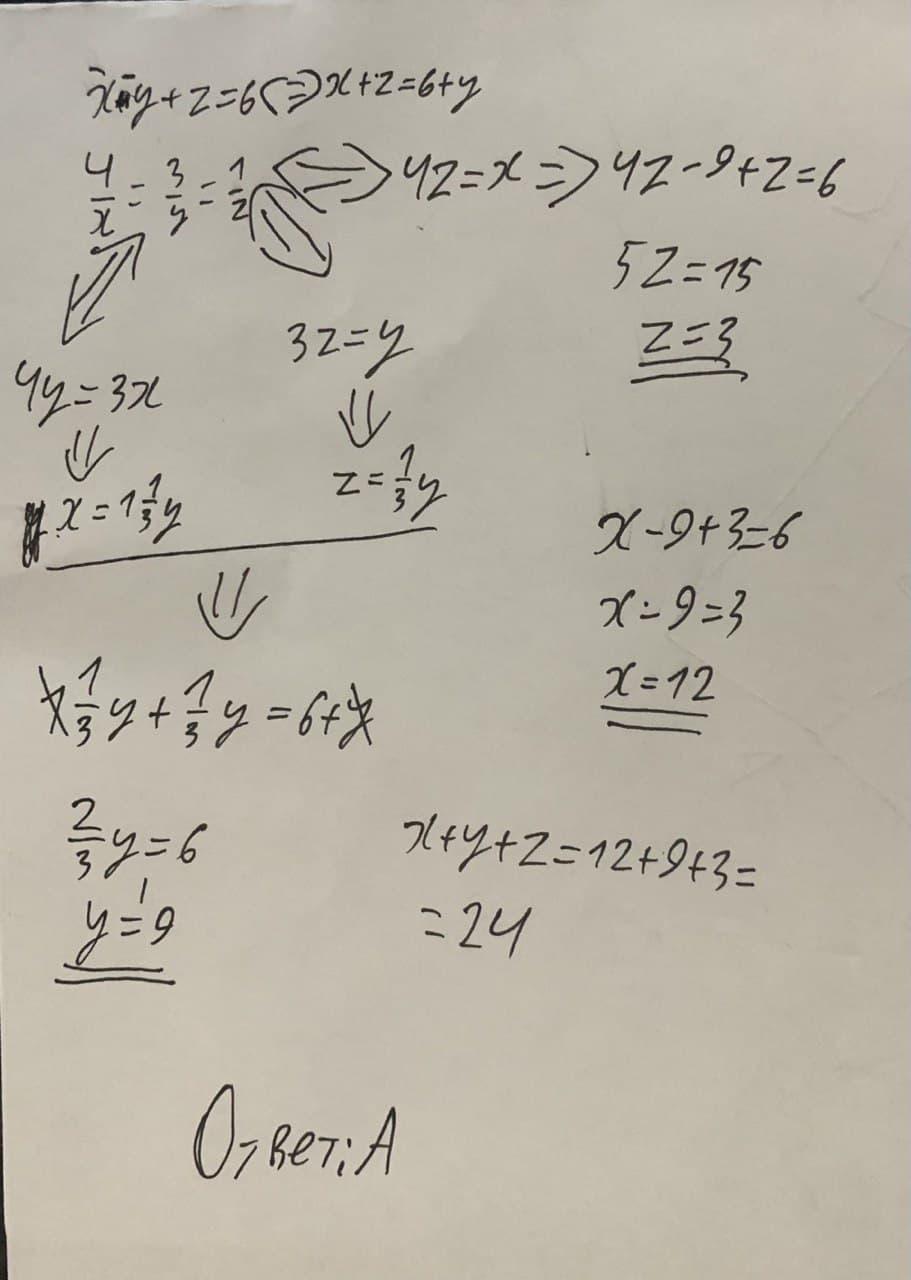 x-y+z=6⇔x+z=6+y
4/x=3/y=1/z ⇔ 4z=x⇒4z-9+z=6
5z=15
z=3
3z=y
⇓
z=1/3y
4y=3x
⇓
x=1 1/3y
⇓
1 1/3y+1/3y=6+y
2/3y=6
y=9
x-9+3=6
x-9=3
x=12
x+y+z=12+9+3=
=24
Ответ:А